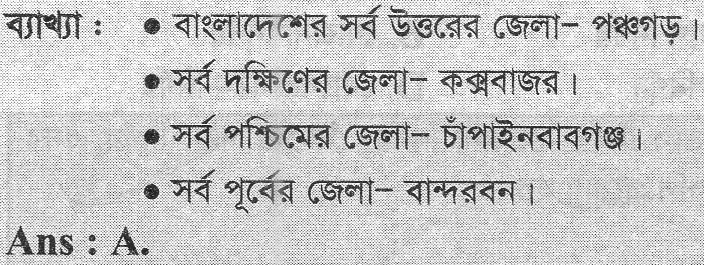 ব্যাখ্যা : ● বাংলাদেশের সর্ব উত্তরের জেলা– পঞ্চগড়।
● সর্ব দক্ষিণের জেলা– কক্সবাজার।
● সর্ব পশ্চিমের জেলা– চাঁপাইনবাবগঞ্জ।
● সর্ব পূর্বের জেলা– বান্দরবন।
Ans : A.